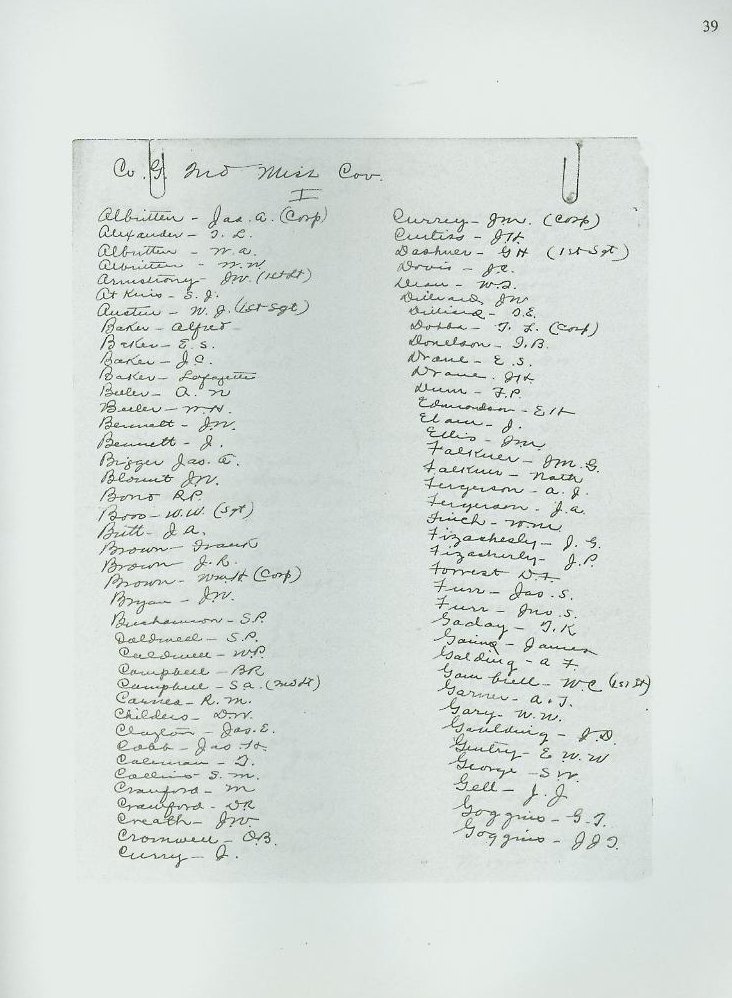 39
Co. G. 2nd Miss Cav.
I
Albritten - Jas. A. (Corp)
Alexander - T. L.
Albritten - W. A.
Albritten - W. W.
Armstrong - JW. (1st Lt)
Atkins - S. J.
Austin - W. J. (1st Sgt)
Baker - Alfred -
Baker - E. S.
Baker - J. C.
Baker - Lafayette
Beeler - A. N
Beeler - W. H.
Bennett - J. W.
Bennett - J.
Bigger Jas. A.
Blount J W.
Bond R. P.
Boss - W. W. (Sgt)
Butt - J A.
Brown - Frank
Brown J. R.
Brown - Wm H (Corp)
Bryan - J W.
Buchannon - S. P.
Caldwell - S. P.
Caldwell - W P
Campbell - B R
Campbell - S A. (2nd Lt)
Carnes - R. M.
Childers - D W.
Clayton - Jas. E.
Cobb - Jas H.
Coleman - T.
Collins S. M.
Crawford - M
Crawford - D R
Creath - J W
Cromwell - O. B.
Curry - J.
Currey - J M. (Corp)
Curtiss - J H.
Dashner - G H (1st Sgt)
Davis - J. C.
Dean - W. T.
Dilliard J W
Dilliard - O. E.
Dobbs - T. L. (Corp)
Donelson - J. B.
Drane - E. S.
Drane J H
Dunn - F. P.
Edmondson - E H
Elam - J.
Ellis - J M.
Falkner - J M. G.
Falkner - Nath
Fergerson - A. J.
Fergerson - J. A.
Finch - Wm
Fizachesly - J. G.
Fizacherly - J. P.
Forrest D F
Furr - Jas. S.
Furr - Jno. S.
Gaday - T. K
Gaines - James
Galding - A F.
Gambrell - W. C (1st Lt)
Garner - A. J.
Gary - W. W.
Gaulding - J. D.
Gentry - E W. W
George - S W.
Gell - J. J
Goggins - G. T.
Goggins - J J T.